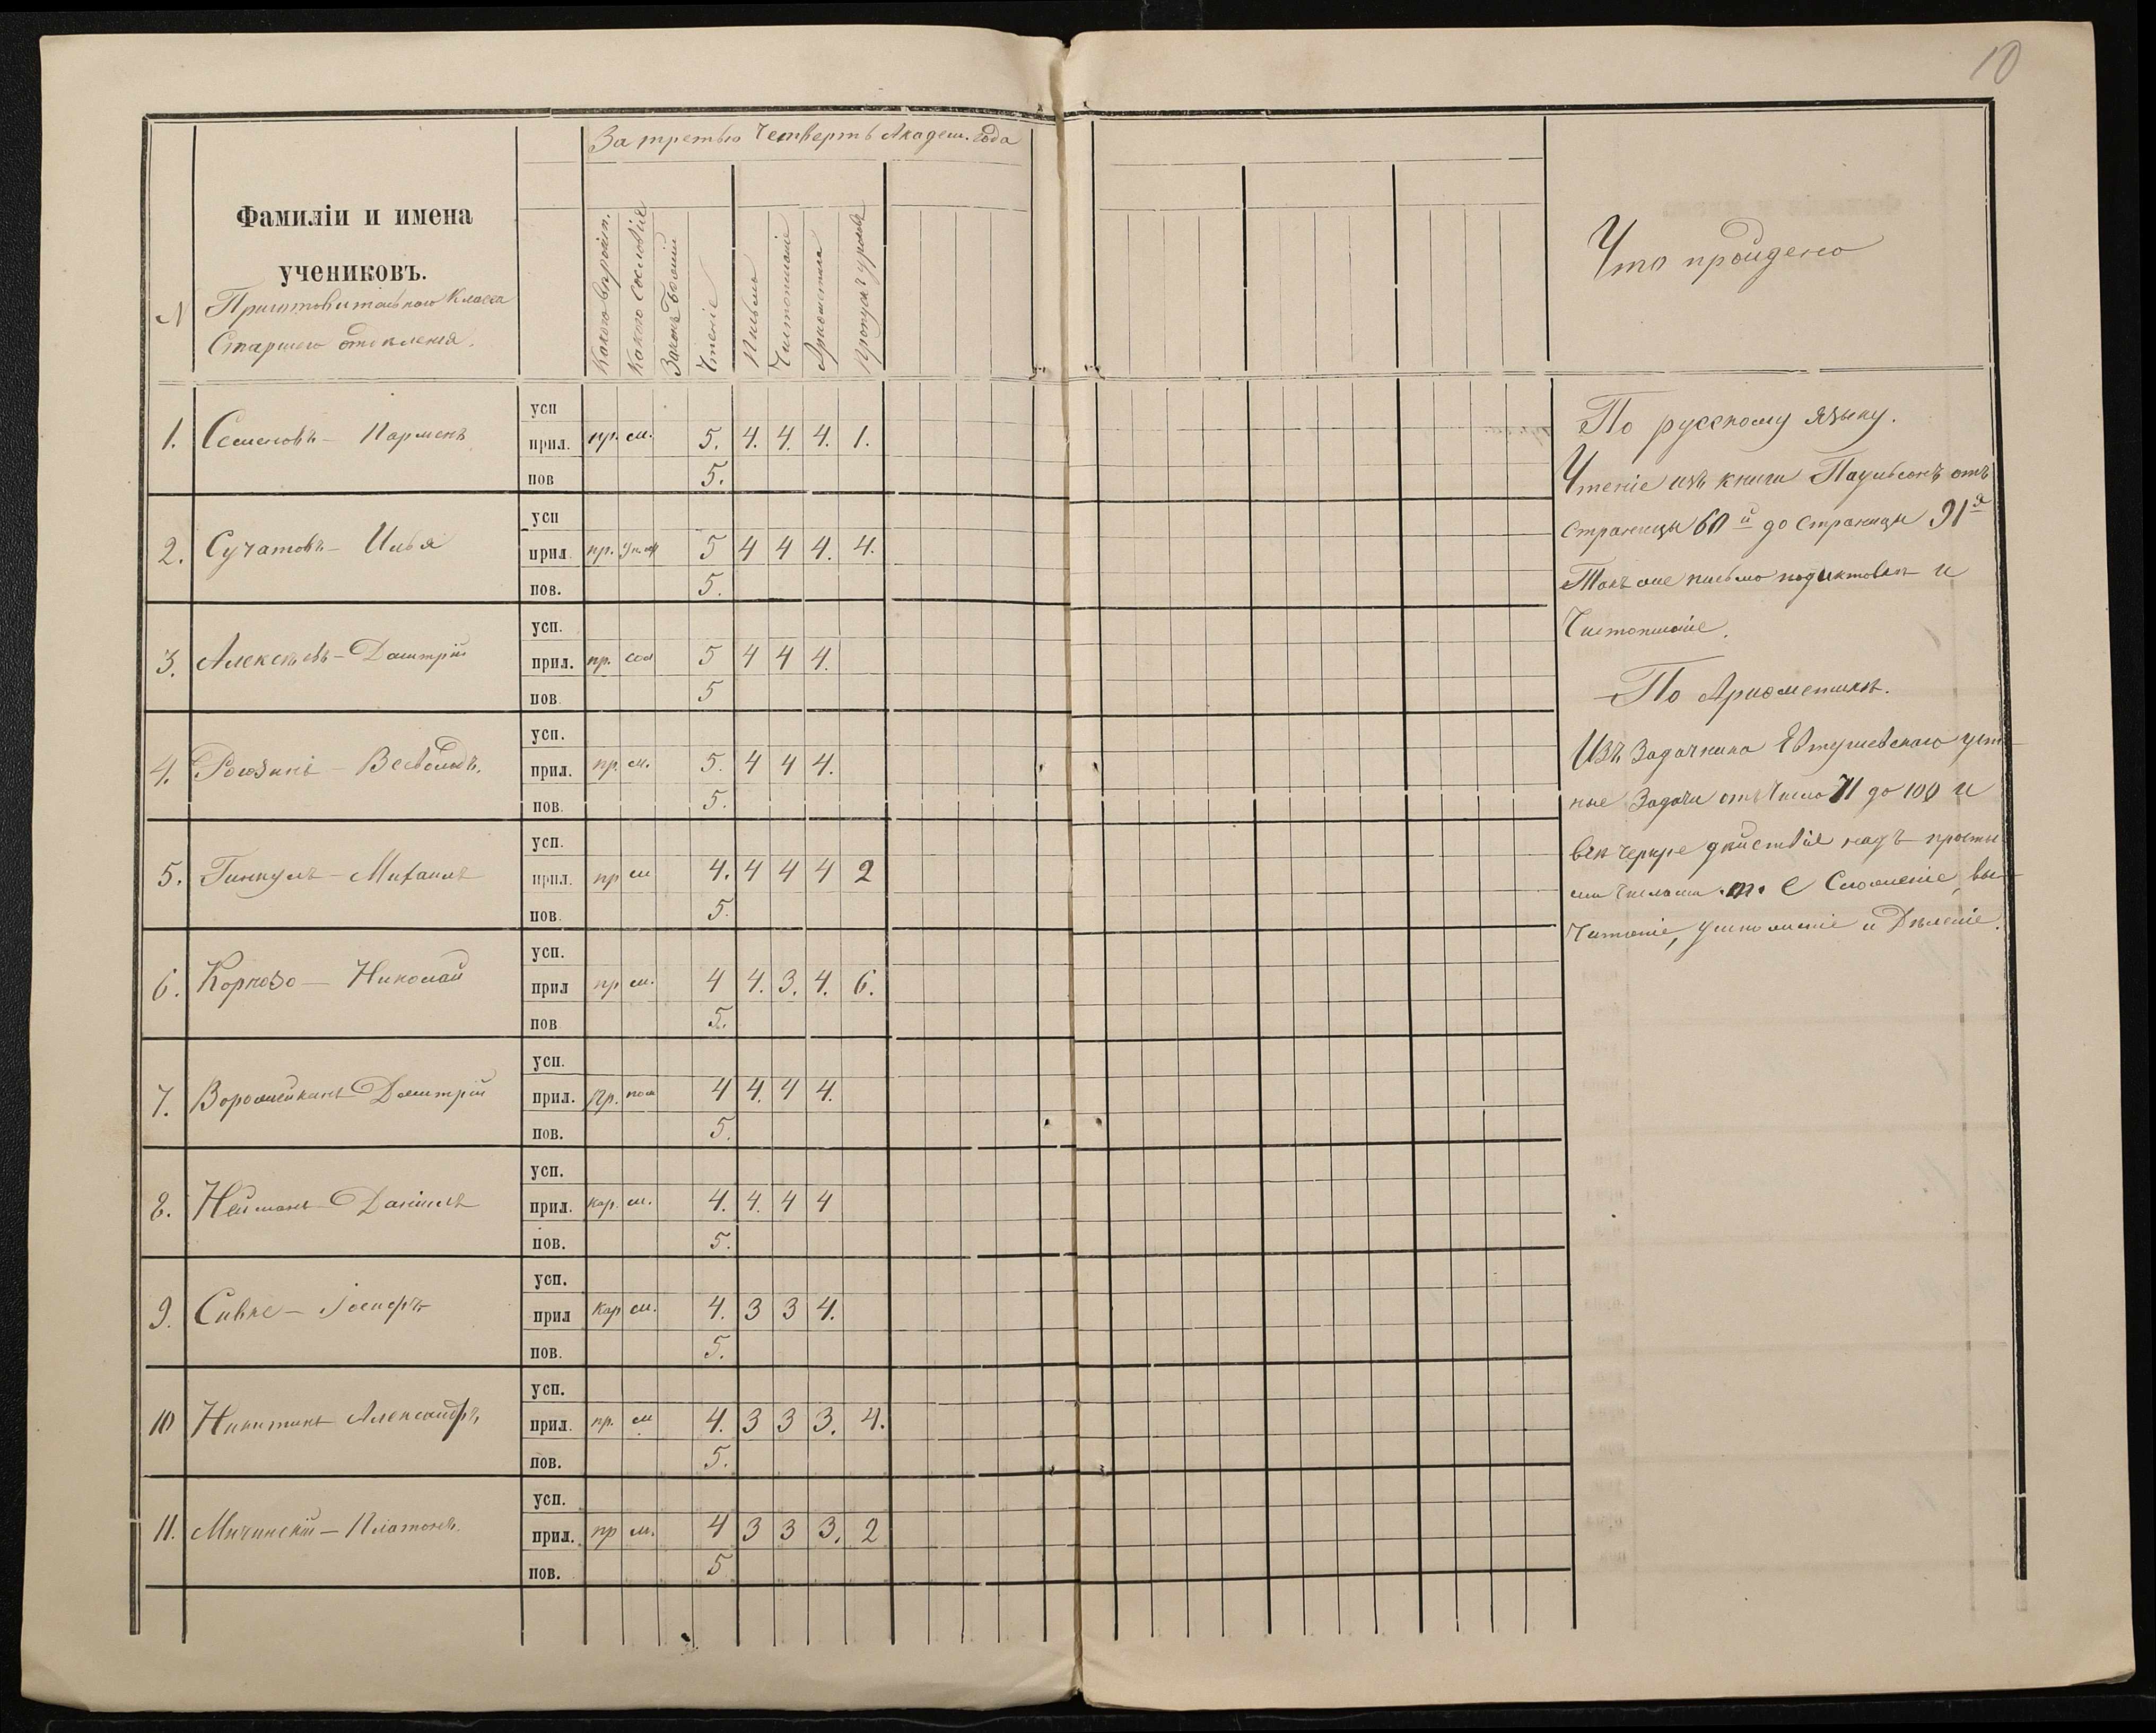 10
За третью Четверть Академ. года
N
Фамиліи и имена
учениковъ.
Приготовительнаго Класса
Старшаго отдѣленія.
Какого вѣроисп.
Какого сословія
Законъ Божій
Чтеніе
Письмо
Чистописаніе
Ариѳметика
Пропуск. уроковъ
Что пройдено
усп
1. Семеновъ — Парменъ прил. пр. м. 5. 4. 4. 4. 1.
пов 5.
усп
2. Сучатовъ — Илья прил. пр. 5 4 4 4. 4.
пов. 5.
усп.
3. Алексѣевъ — Дмитрій прил. пр. 5 4 4 4.
пов. 5
усп.
4. Всеволодъ. прил. пр. м. 5. 4 4 4.
пов. 5.
усп.
5. Гинкулъ — Михаилъ прил. пр м 4. 4 4 4 2
пов. 5.
усп.
6. Николай прил пр м. 4 4. 3. 4. 6.
пов 5.
усп.
7. Ворожейкинъ Дмитрій прил. пр. 4 4. 4 4.
пов. 5.
усп.
8. Нейманъ — Даніилъ прил. кар. м. 4. 4. 4 4
пов. 5.
усп.
9. Сивке — Іосифъ прил кар м. 4. 3 3 4.
пов. 5.
усп.
10 Никитинъ Александръ, прил. пр. м 4. 3 3 3. 4.
пов. 5.
усп.
11. Мичинскій — Платонъ. прил. пр м. 4 3 3 3. 2
пов. 5
По русскому языку.
Чтеніе изъ книги Паульсонъ отъ
страницы 60й до страницы 91я
Такъ же письмо подиктовкѣ и
Чистописаніе.
По Ариѳметикѣ.
Изъ Задачника Евтушевскаго уст-
ные Задачи отъ числа 71 до 100 и
всѣ четыре дѣйствія надъ просты-
ми числами т. е Сложеніе, вы-
читаніе, умноженіе и Дѣленіе.